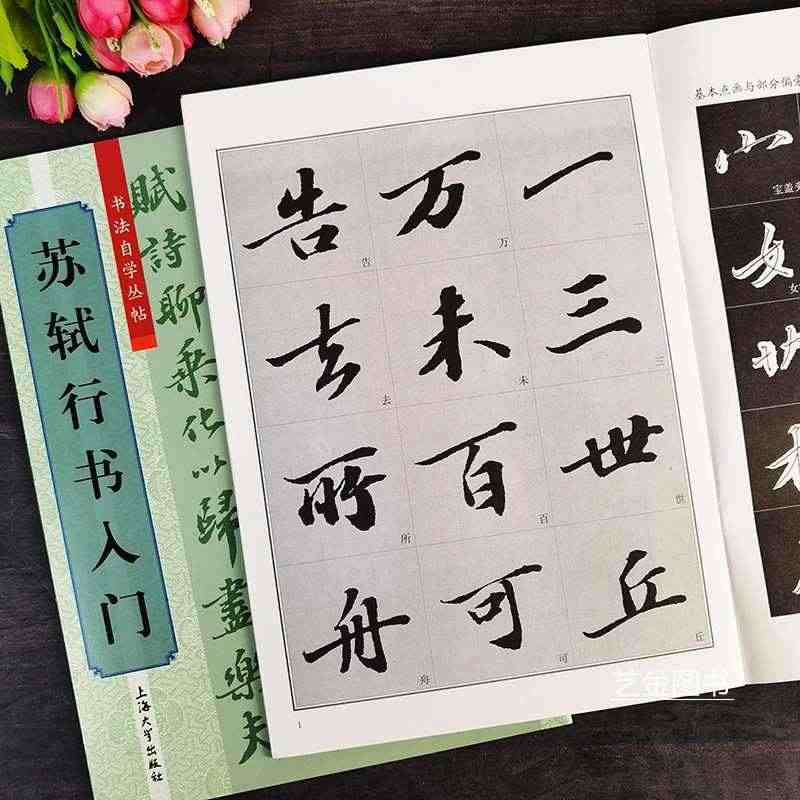 书法自学丛帖
苏轼行书入门
上海大学出版社
賦詩聊乘化以歸盡樂夫
一 一
三 三
世 世
丘 丘
万 万
未 未
百 百
可 可
告 告
去 去
所 所
舟 舟
1
基本点画与部分偏
宝盖
女
女
艺金图书